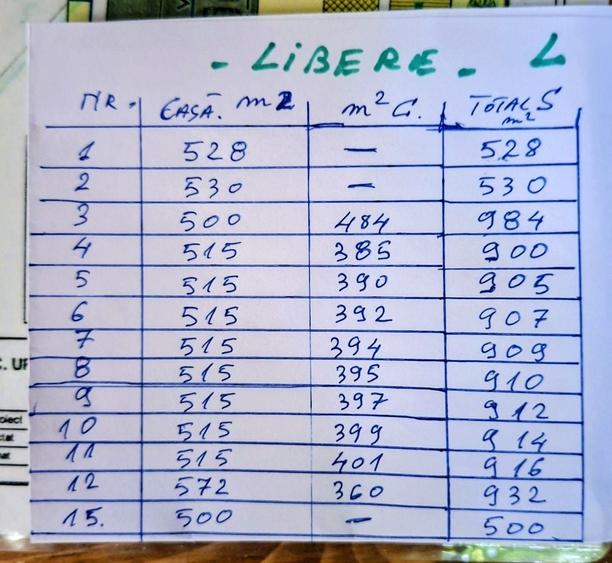 - LiBERE - L
NR. CASĂ. m2 m² C. TOTAL S m²
1 528 — 528
2 530 — 530
3 500 484 984
4 515 385 900
5 515 390 905
6 515 392 907
7 515 394 909
8 515 395 910
9 515 397 912
10 515 399 914
11 515 401 916
12 572 360 932
15. 500 — 500